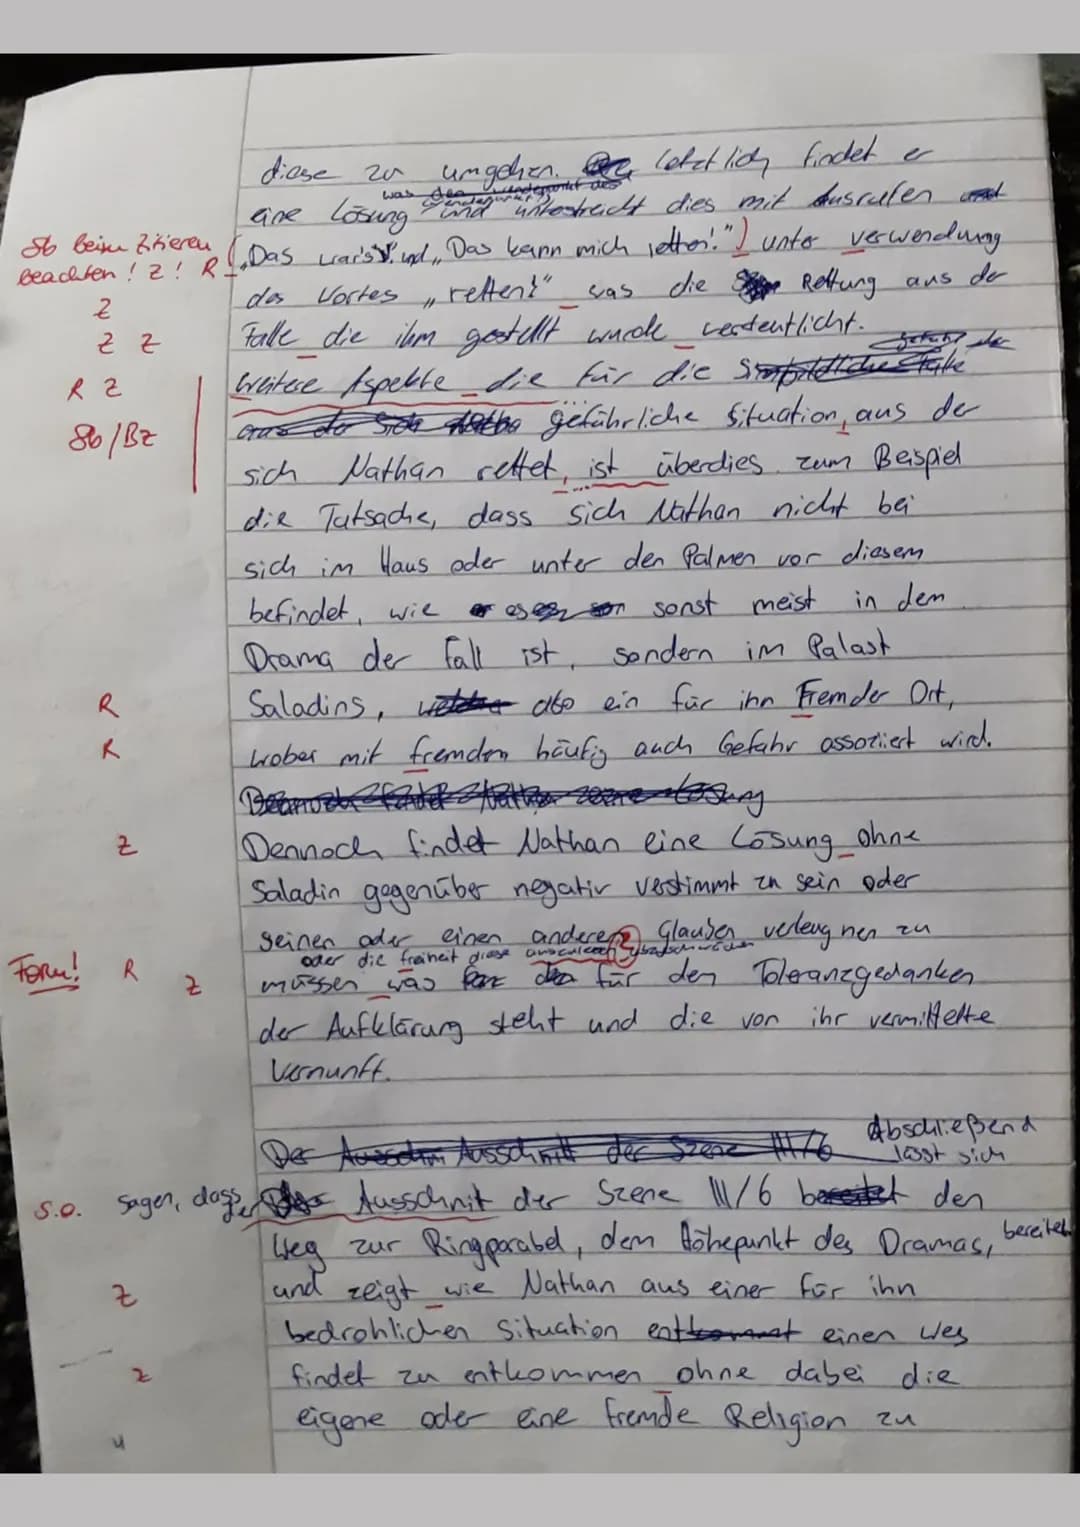 diese zu umgehen. Letztlich findet er
was den Wendepunkt des
eine Lösung und unterstreicht dies mit Ausrufen
Sb beim Zitieren
beachten! Z! R
„Das war's!" und „Das kann mich retten!") unter verwendung
Z
des Wortes „retten!" was die Rettung aus der
Z Z
Falle die ihm gestellt wurde verdeutlicht.
R Z
Weitere Aspekte die für die Sinnbildliche Falle
Sb/Bz
aus der sich gefährliche Situation, aus der
sich Nathan rettet, ist überdies zum Beispiel
die Tatsache, dass sich Nathan nicht bei
sich im Haus oder unter den Palmen vor diesem
befindet, wie es sonst meist in dem
Drama der Fall ist, sondern im Palast
R
Saladins, also ein für ihn Fremder Ort,
R
wobei mit fremden häufig auch Gefahr assoziiert wird.
Dennoch findet Nathan seine Lösung
Z
Dennoch findet Nathan eine Lösung ohne
Saladin gegenüber negativ verstimmt zu sein oder
seinen oder einen anderen Glauben verleugnen zu
oder die freiheit diese
Form! R Z
müssen was für den Toleranzgedanken
der Aufklärung steht und die von ihr vermittelte
Vernunft.
Der Ausschnitt der Szene III/6 Abschließend
lässt sich
s.o.
sagen, dass der Ausschnit der Szene III/6 bereitet den
Weg zur Ringparabel, dem Höhepunkt des Dramas, bereitet
Z
und zeigt wie Nathan aus einer für ihn
bedrohlichen Situation entkommt einen Weg
Z
findet zu entkommen ohne dabei die
eigene oder eine fremde Religion zu